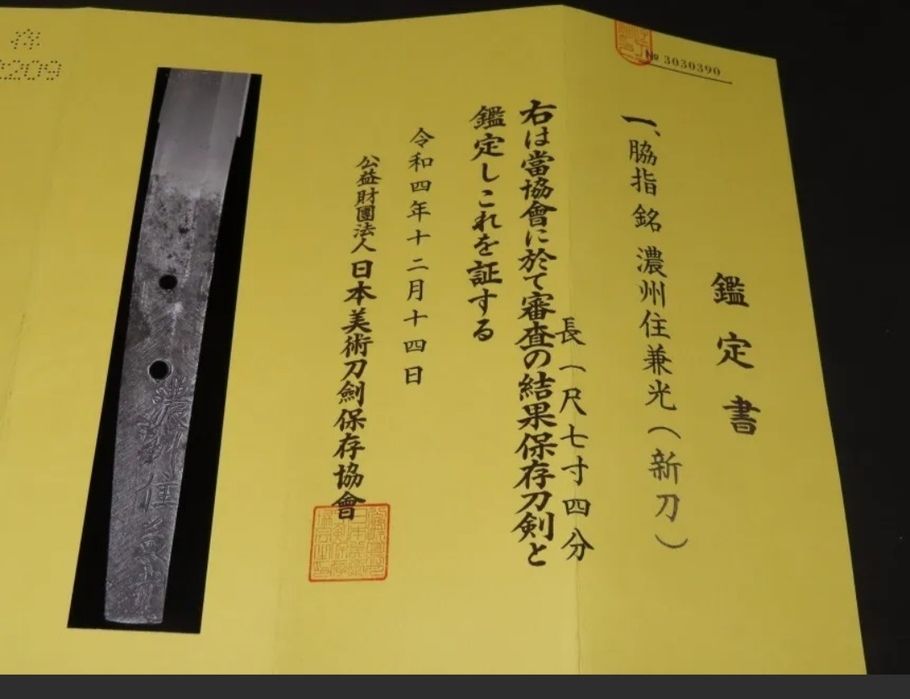 № 3030390
鑑定書
一、脇指 銘 濃州住兼光(新刀)
長 一尺七寸四分
右は當協會に於て審査の結果保存刀剣と
鑑定しこれを証する
令和四年十二月十四日
公益財團法人 日本美術刀劍保存協會
濃州住兼
2209